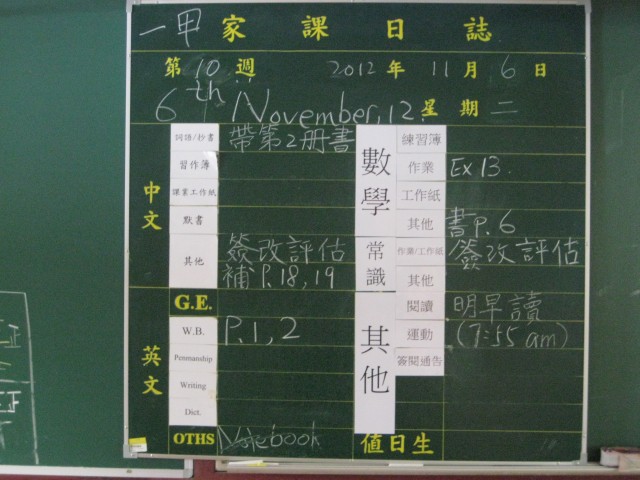 一甲 家課日誌
第 10 週 2012 年 11 月 6 日
6th November, 12. 星期二
中文
詞語/抄書 帶第2册書
習作簿
課業工作紙
默書
其他 簽改評估
補 P.18, 19
英文
G.E.
W.B. P.1, 2
Penmanship
Writing
Dict.
OTHS Notebook
數學
練習簿
作業 Ex 13.
工作紙
其他 書 P.6
常識
作業/工作紙 簽改評估
其他
其他
閱讀 明早讀
運動 (7:55 am)
簽閱通告
值日生